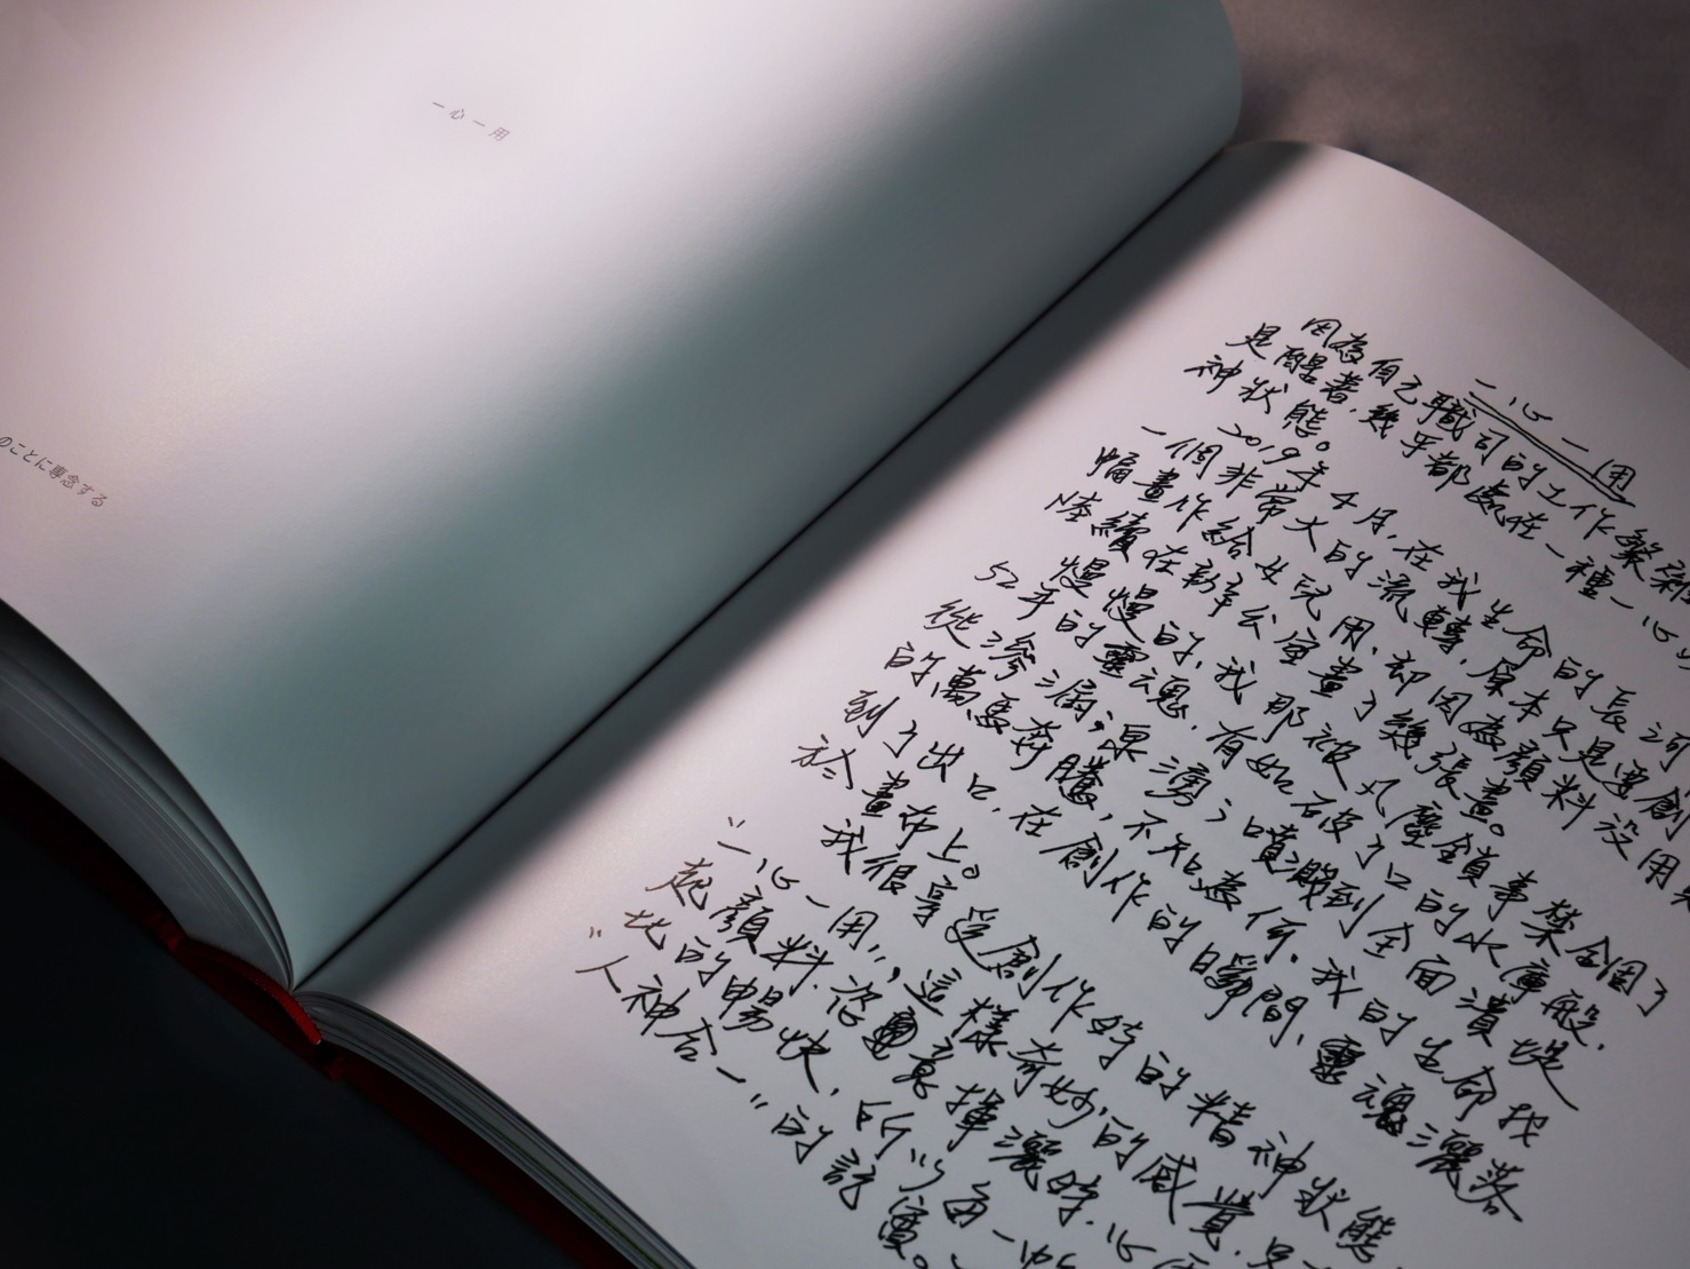 一心一用
のことに専念する
一心一用
因為自己職司的工作繁雜
是醒著，幾乎都處在一種一心
神狀態。
2019年4月，在我生命的長河，
一個非常大的流轉，原本只是要創
幅畫作給女兒用，卻因為顏料沒用
陸續在新辛公室畫了幾張畫。
慢慢的，我那被凡塵鎖事禁錮了
52年的靈魂，有如破了口的水庫般，
從滲漏；泉湧；噴濺到全面潰堤
的萬馬奔騰，不知為何，我的生命找
到了出口，在創作的瞬間，靈魂灑落
於畫布上。
我很享受創作時的精神狀態
"一心一用"，這樣奇妙的感覺，
起顏料，恣意揮灑時，心
此的暢快，所以每一
"人神合一"的記